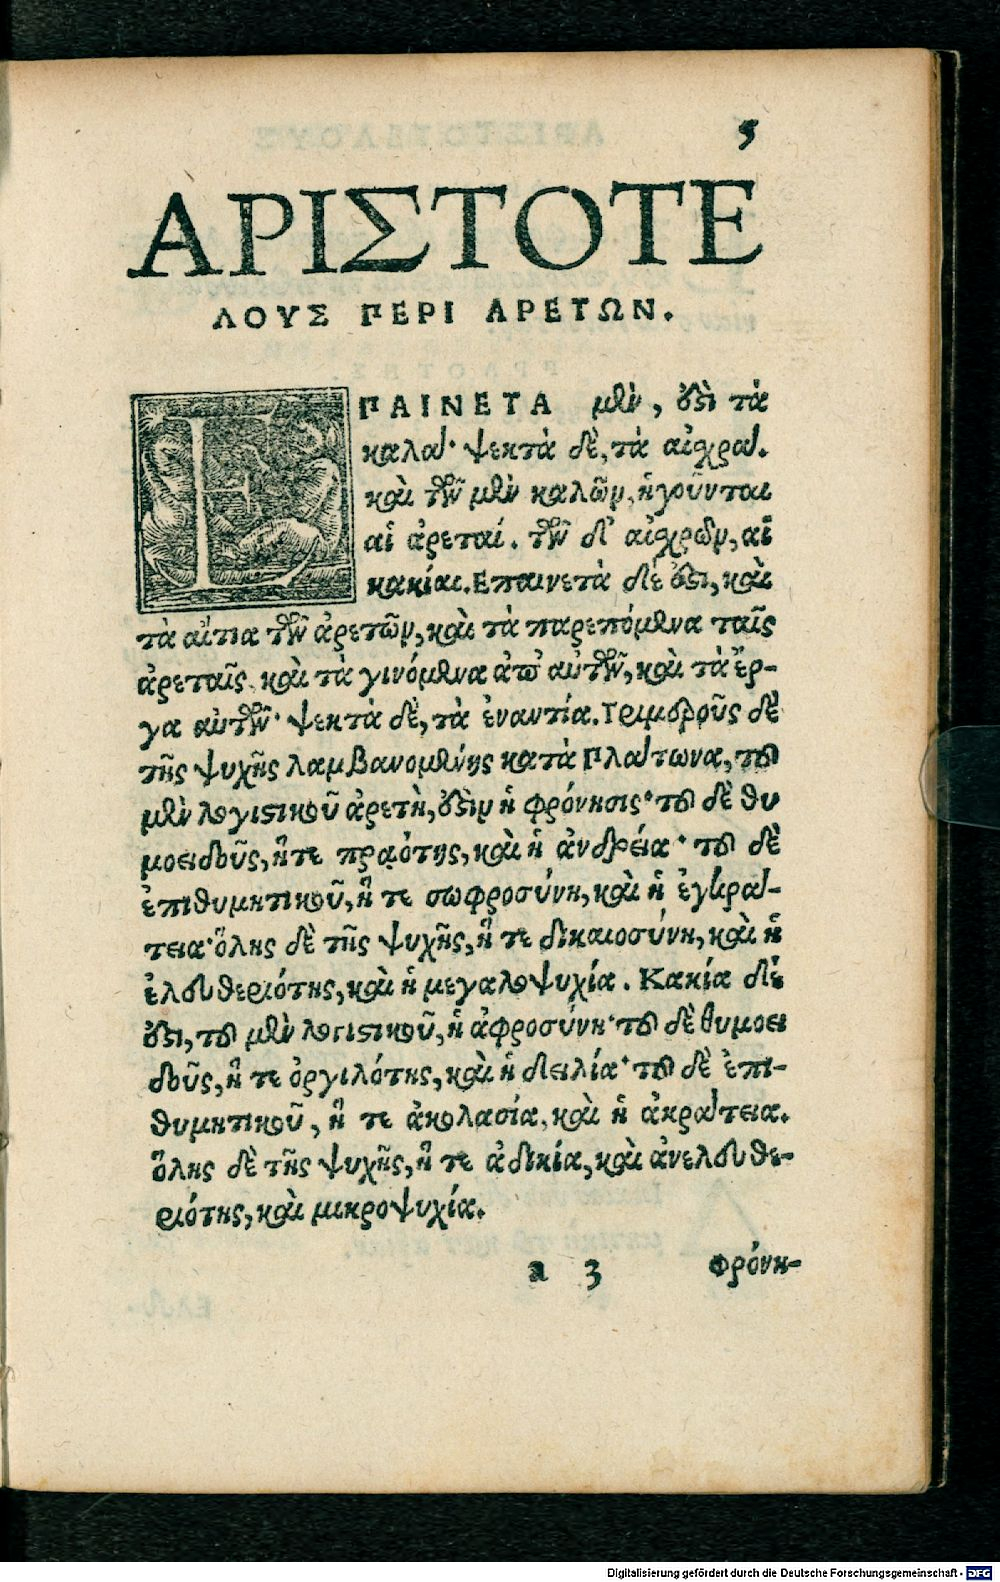 5
ΑΡΙΣΤΟΤΕ
ΛΟΥΣ ΠΕΡΙ ΑΡΕΤΩΝ.
ΕΠΑΙΝΕΤΑ μὲν, ἐστὶ τὰ
καλά· ψεκτὰ δὲ, τὰ αἰσχρά.
καὶ τῶν μὲν καλῶν, ἡγοῦνται
αἱ ἀρεταί. τῶν δ' αἰσχρῶν, αἱ
κακίαι. Επαινετὰ δέ ἐστι, καὶ
τὰ αἴτια τῶν ἀρετῶν, καὶ τὰ παρεπόμενα ταῖς
ἀρεταῖς, καὶ τὰ γινόμενα ἀπ' αὐτῶν, καὶ τὰ ἔρ-
γα αὐτῶν· ψεκτὰ δὲ, τὰ ἐναντία. Τριμεροῦς δὲ
τῆς ψυχῆς λαμβανομένης κατὰ Πλάτωνα, τοῦ
μὲν λογιστικοῦ ἀρετὴ, ἐστὶν ἡ φρόνησις· τοῦ δὲ θυ
μοειδοῦς, ἥτε πραότης, καὶ ἡ ἀνδρεία· τοῦ δὲ
ἐπιθυμητικοῦ, ἥ τε σωφροσύνη, καὶ ἡ ἐγκρά-
τεια· ὅλης δὲ τῆς ψυχῆς, ἥ τε δικαιοσύνη, καὶ ἡ
ἐλευθεριότης, καὶ ἡ μεγαλοψυχία. Κακία δέ
ἐστι, τοῦ μὲν λογιστικοῦ, ἡ ἀφροσύνη· τοῦ δὲ θυμοει
δοῦς, ἥ τε ὀργιλότης, καὶ ἡ δειλία· τοῦ δὲ ἐπι-
θυμητικοῦ, ἥ τε ἀκολασία, καὶ ἡ ἀκράτεια.
ὅλης δὲ τῆς ψυχῆς, ἥ τε ἀδικία, καὶ ἀνελευθε-
ριότης, καὶ μικροψυχία.
a 3 φρόνη-
Digitalisierung gefördert durch die Deutsche Forschungsgemeinschaft - DFG